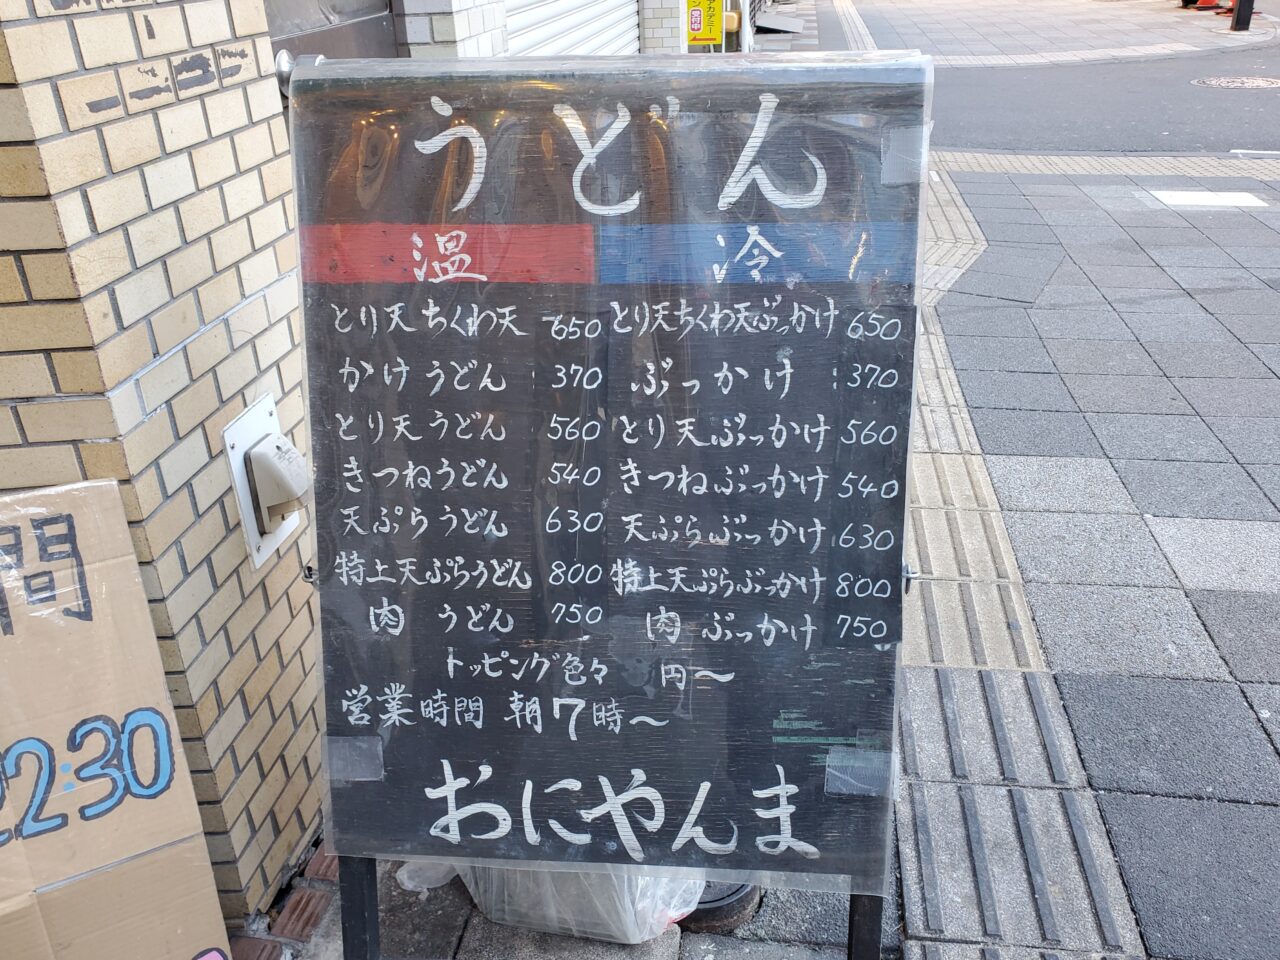 アカデミー
受付中
うどん
温 冷
とり天ちくわ天 650 とり天ちくわ天ぶっかけ 650
かけうどん 370 ぶっかけ 370
とり天うどん 560 とり天ぶっかけ 560
きつねうどん 540 きつねぶっかけ 540
天ぷらうどん 630 天ぷらぶっかけ 630
特上天ぷらうどん 800 特上天ぷらぶっかけ 800
肉うどん 750 肉ぶっかけ 750
トッピング色々 円〜
営業時間 朝7時〜
おにやんま
間
22:30